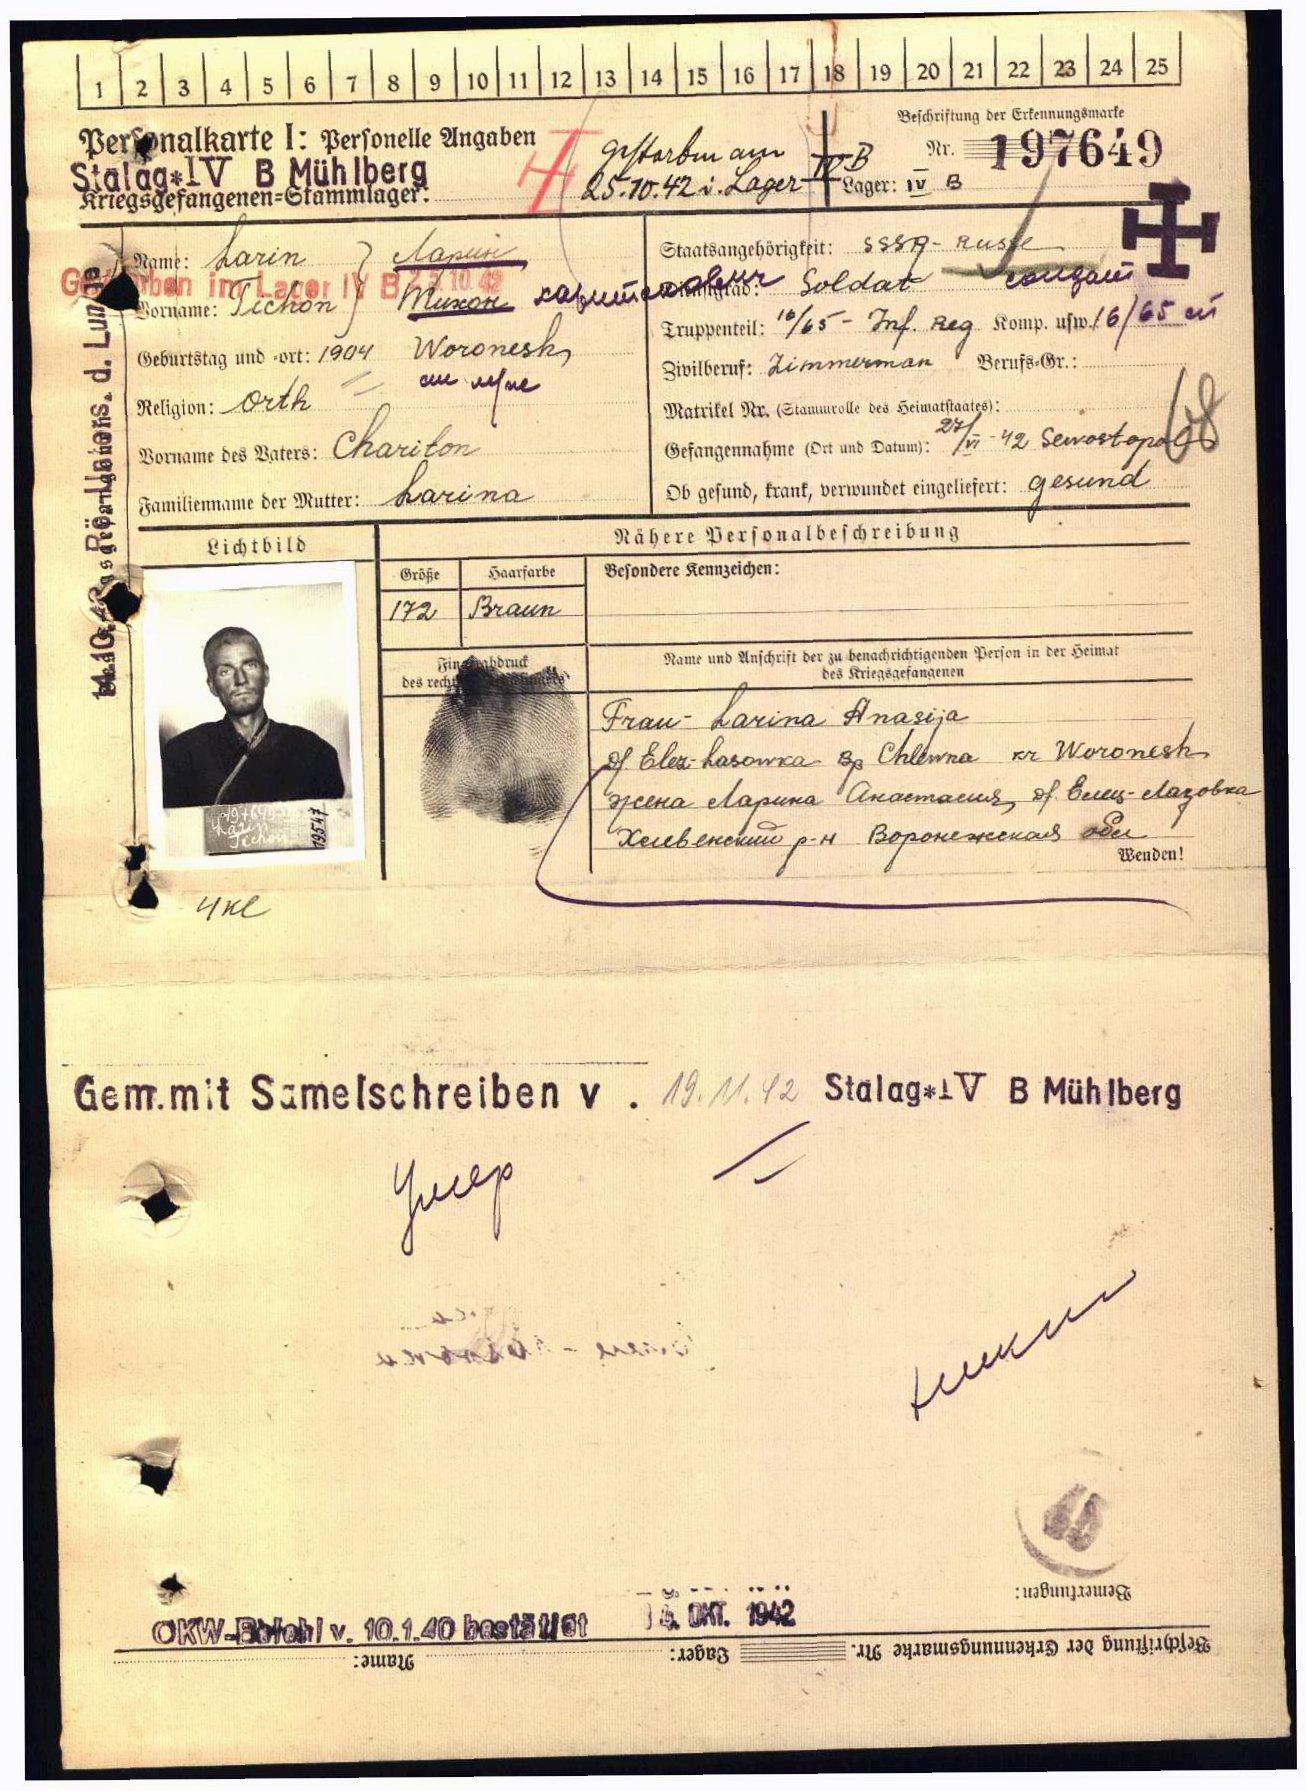 1 2 3 4 5 6 7 8 9 10 11 12 13 14 15 16 17 18 19 20 21 22 23 24 25
Personalkarte I: Personelle Angaben
Stalag*IV B Mühlberg
Kriegsgefangenen=Stammlager:
gestorben am
25.10.42 i. Lager IV B
Beschriftung der Erkennungsmarke
Nr. 197649
Lager: IV B
Name: Larin Ларин
Gestorben im Lager IV B 25.10.42
Vorname: Tichon Тихон Харитонович
Geburtstag und =ort: 1904 Woronesh
Religion: Orth
Vorname des Vaters: Chariton
Familienname der Mutter: Larina
Staatsangehörigkeit: SSSR - Russe
Dienstgrad: Soldat солдат
Truppenteil: 16/65 - Inf. Reg Komp. usw. 16/65 сп
Zivilberuf: Zimmerman Berufs=Gr.:
Matrikel Nr. (Stammrolle des Heimatstaates):
Gefangennahme (Ort und Datum): 27/VI - 42 Sewostopol
68
Ob gesund, krank, verwundet eingeliefert: gesund
Lichtbild
Nähere Personalbeschreibung
Größe Haarfarbe Besondere Kennzeichen:
172 Braun
Fingerabdruck
des rechten Zeigefingers
Name und Anschrift der zu benachrichtigenden Person in der Heimat
des Kriegsgefangenen
Frau - Larina Anasija
df Elez-Lasowka Chlewna kr Woronesh
жена Ларина Анастасия, д. Елец-Лазовка
Хлевенский р-н Воронежская обл
Wenden!
197649
Larin
Tichon
19547
4 кл
Gem. mit Samelschreiben v. 19.11.42 Stalag*IV B Mühlberg
Умер
Bemerkungen:
OKW-Befehl v. 10.1.40 bestätigt OKT. 1942
Beschriftung der Erkennungsmarke Nr. Lager: Name: